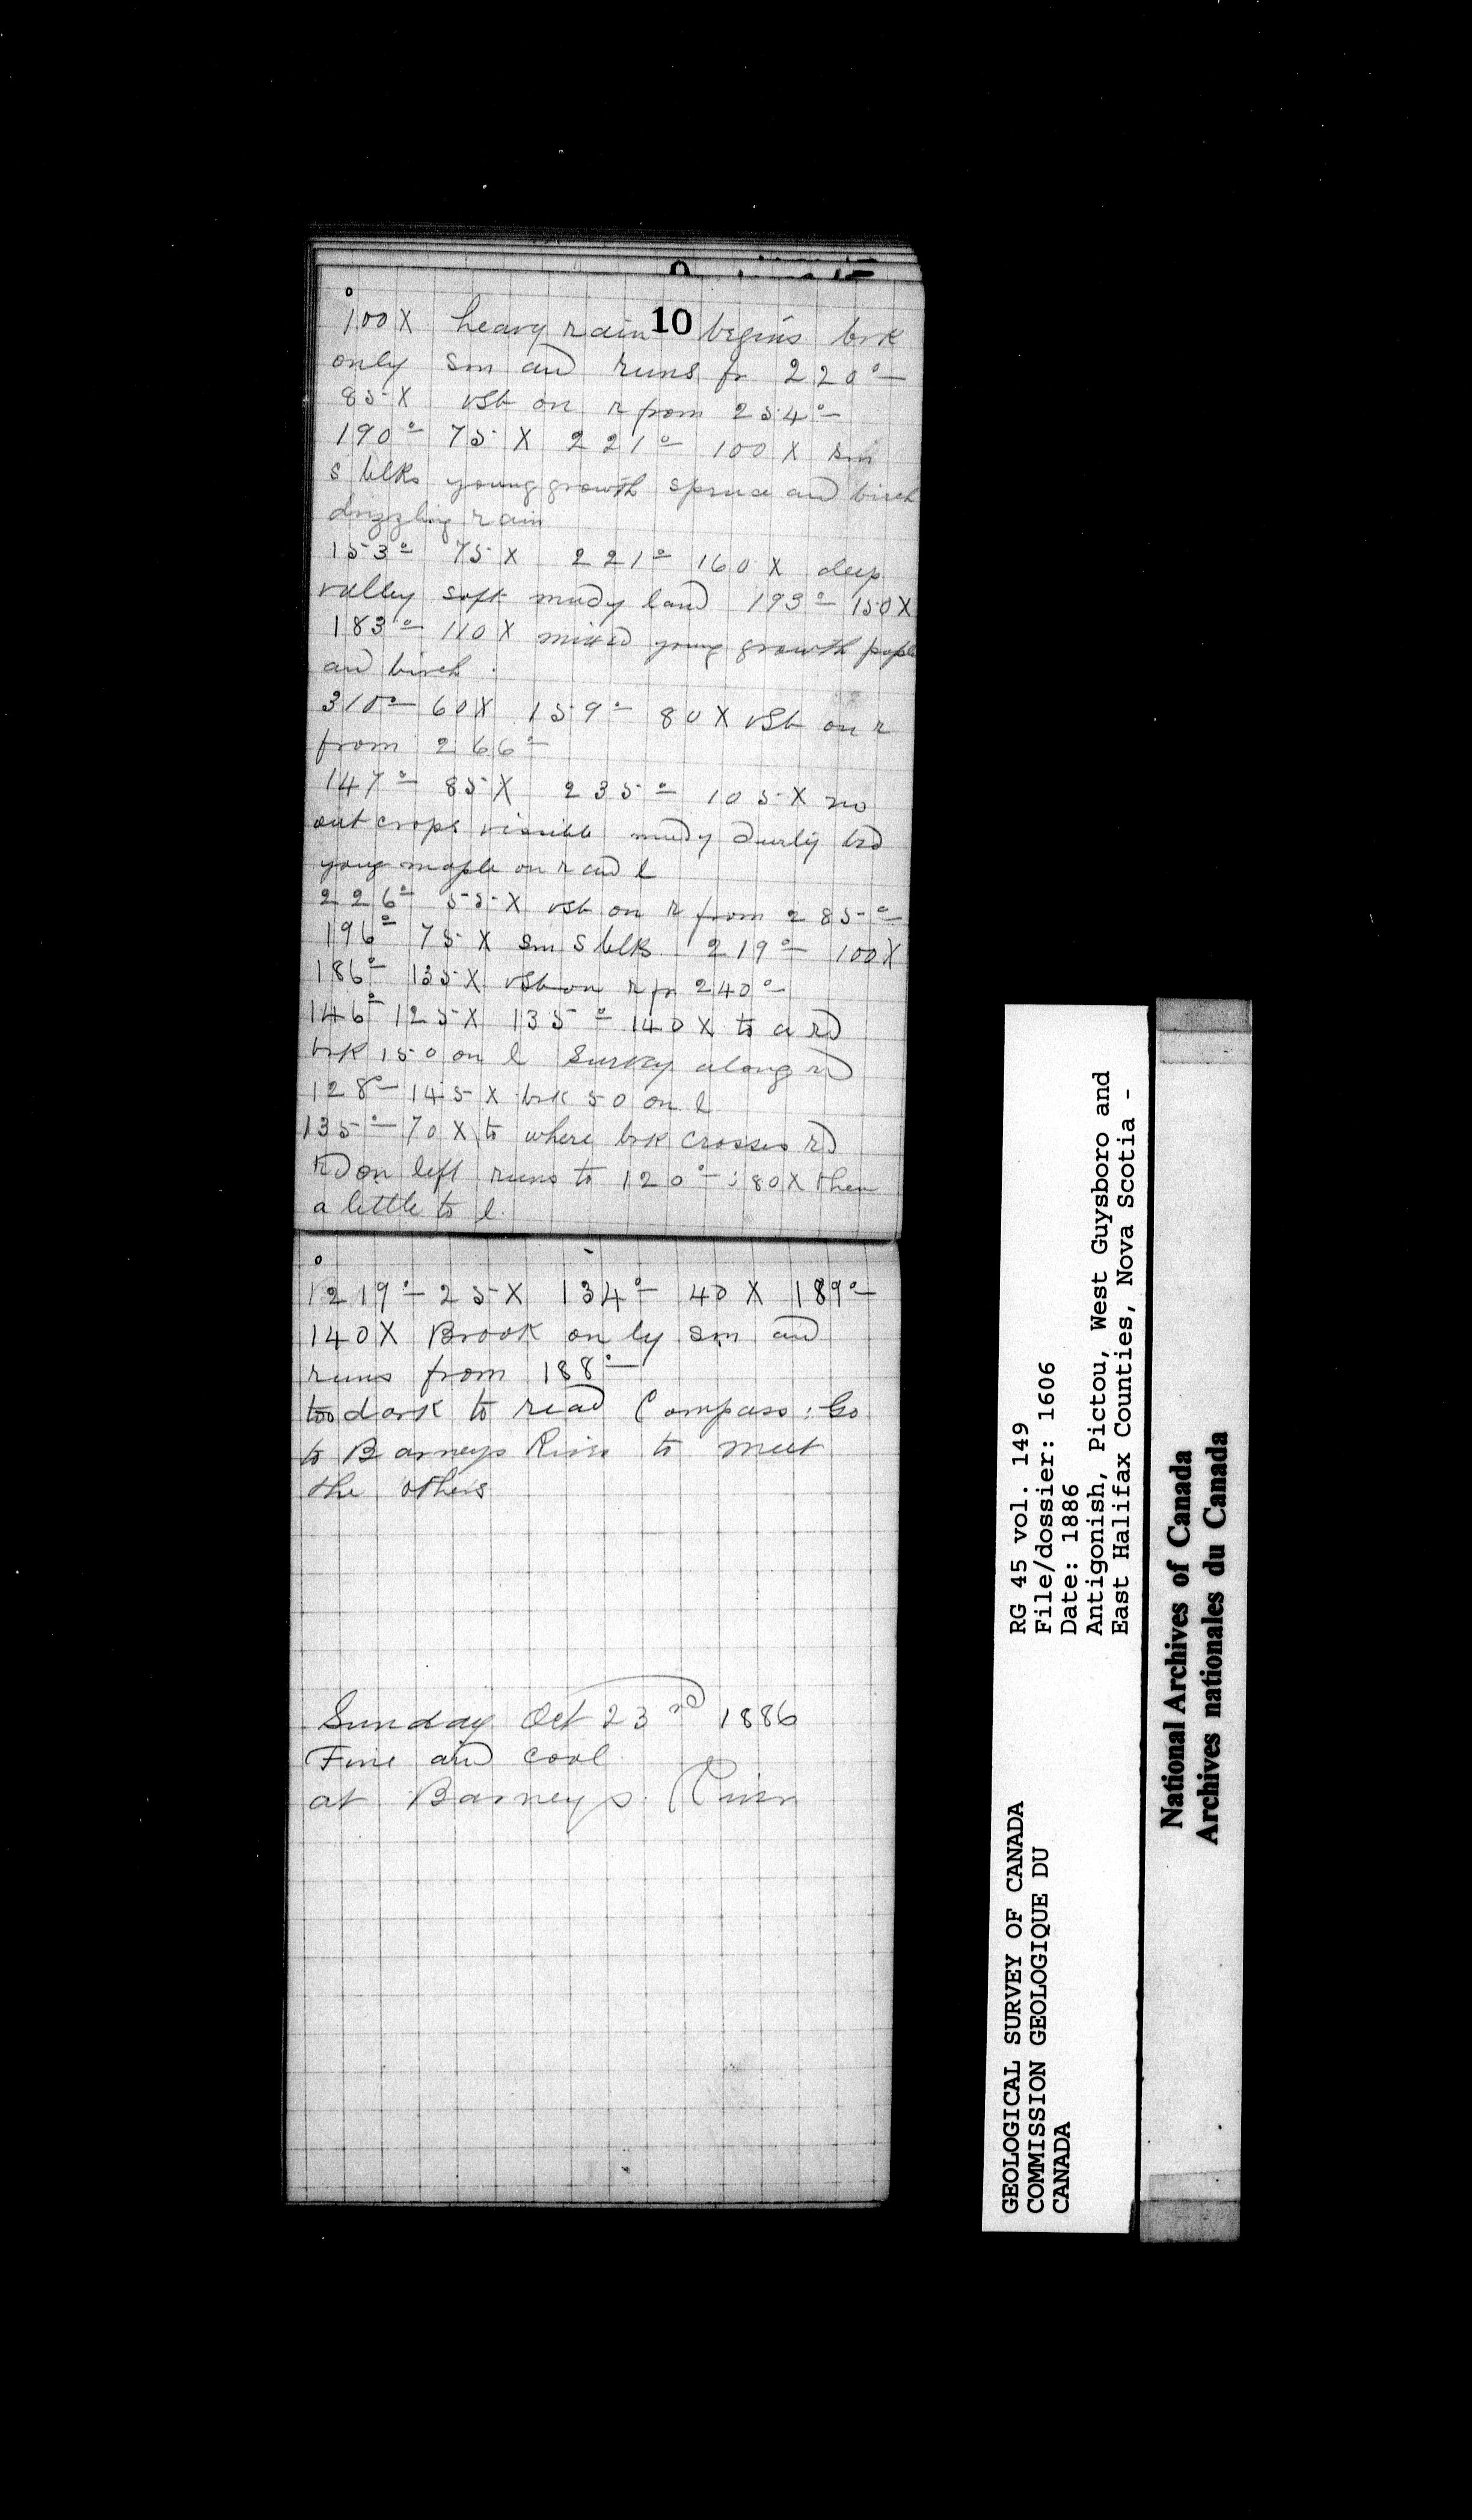 10
100 X heavy rain begins brk
only sm and runs fr 220°
85 X vsb on r from 254°
190° 75 X 221° 100 X sm
s blks young growth spruce and birch
drizzling rain
153° 75 X 221° 160 X deep
valley soft mudy land 193° 150 X
183° 110 X mixed young growth
and birch
310° 60 X 159° 80 X vsb on r
from 266°
147° 85 X 235° 105 X no
out crops vissible mudy bd
young maple on r and l
226° 55 X vsb on r from 285°
196° 75 X sm s blks 219° 100 X
186° 135 X vsb on r fr 240°
146° 125 X 135° 140 X to a rd
brk 150 on l Survey along rd
128° 145 X brk 50 on l
135° 70 X to where brk crosses rd
rd on left runs to 120° : 80 X then
a little to l.
219° 25 X 134° 40 X 189°
140 X Brook only sm and
runs from 188°
too dark to read Compass : Go
to Barneys River to meet
the others
Sunday Oct 23rd 1886
Fine and cool
at Barneys River
GEOLOGICAL SURVEY OF CANADA
COMMISSION GEOLOGIQUE DU
CANADA
RG 45 vol. 149
File/dossier: 1606
Date: 1886
Antigonish, Pictou, West Guysboro and
East Halifax Counties, Nova Scotia -
National Archives of Canada
Archives nationales du Canada